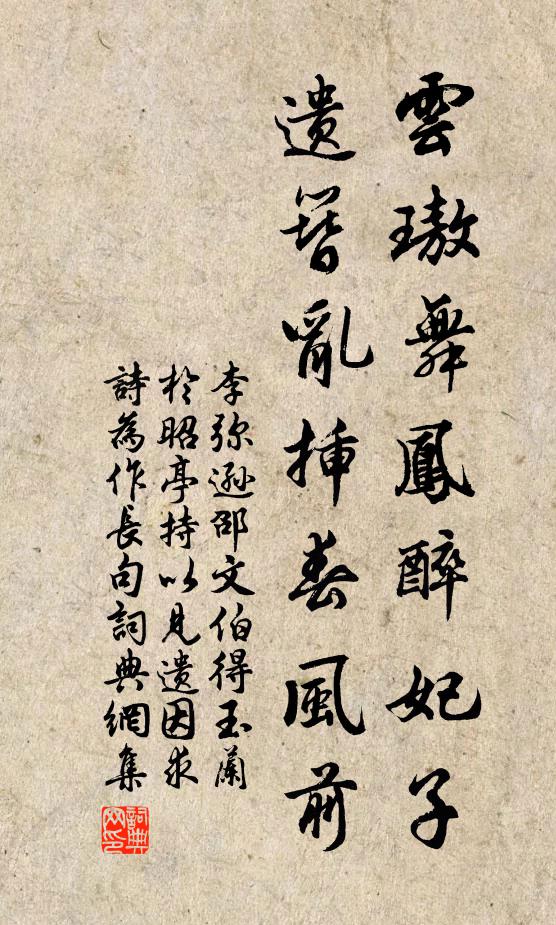 雲璈舞鳳醉妃子
遺簪亂插春風前
李弥遜邵文伯得玉蘭
於昭亭持以見遺因求
詩為作長句詞典網集
詞典
网印